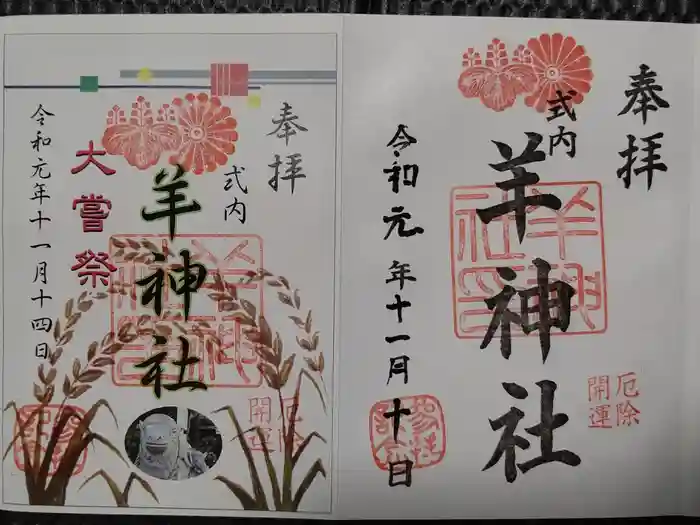 奉拝
式内
羊神社
大嘗祭
令和元年十一月十四日
厄除
開運
奉拝
式内
羊神社
令和元年十一月十日
厄除
開運